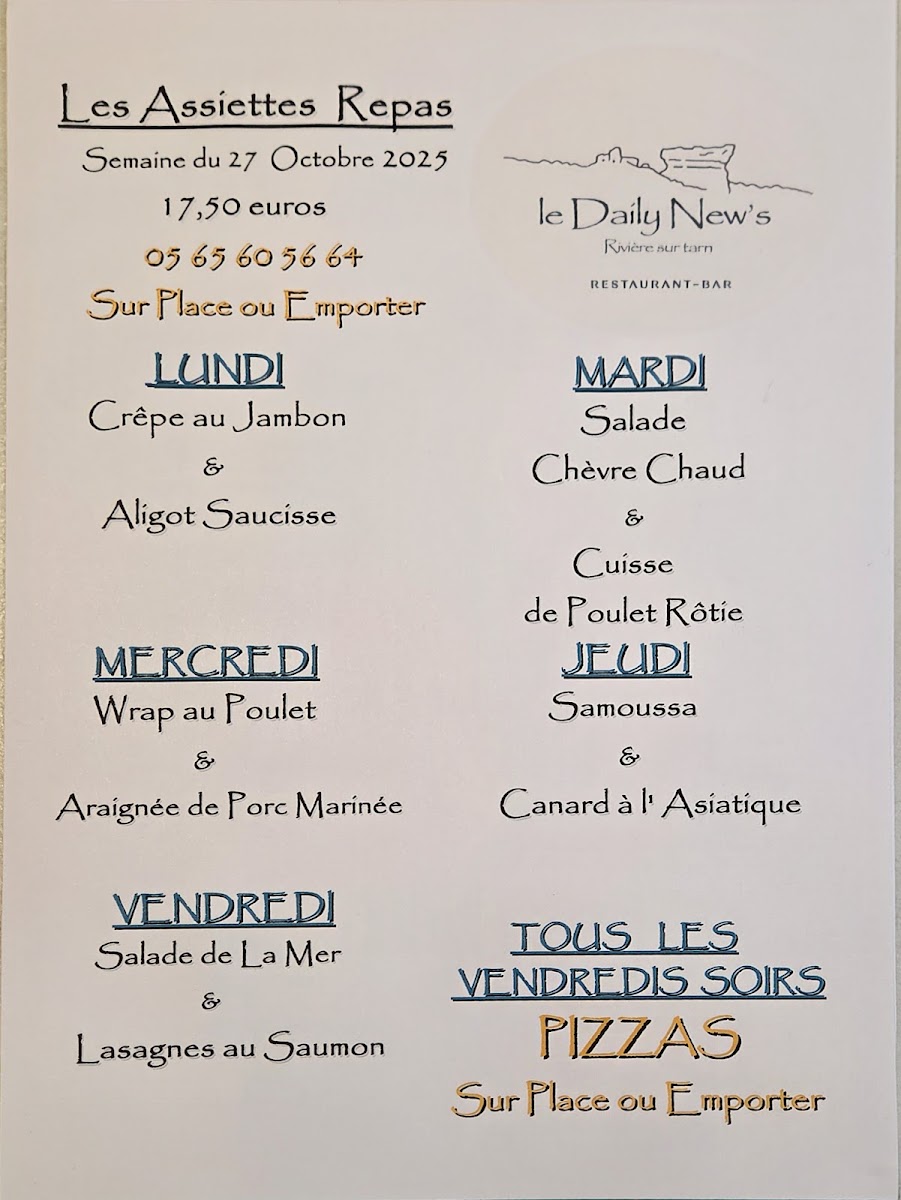 Les Assiettes Repas
Semaine du 27 Octobre 2025
17,50 euros
05 65 60 56 64
Sur Place ou Emporter
le Daily New's
Rivière sur tarn
RESTAURANT-BAR
LUNDI
Crêpe au Jambon
&
Aligot Saucisse
MARDI
Salade
Chèvre Chaud
&
Cuisse
de Poulet Rôtie
MERCREDI
Wrap au Poulet
&
Araignée de Porc Marinée
JEUDI
Samoussa
&
Canard à l' Asiatique
VENDREDI
Salade de La Mer
&
Lasagnes au Saumon
TOUS LES
VENDREDIS SOIRS
PIZZAS
Sur Place ou Emporter